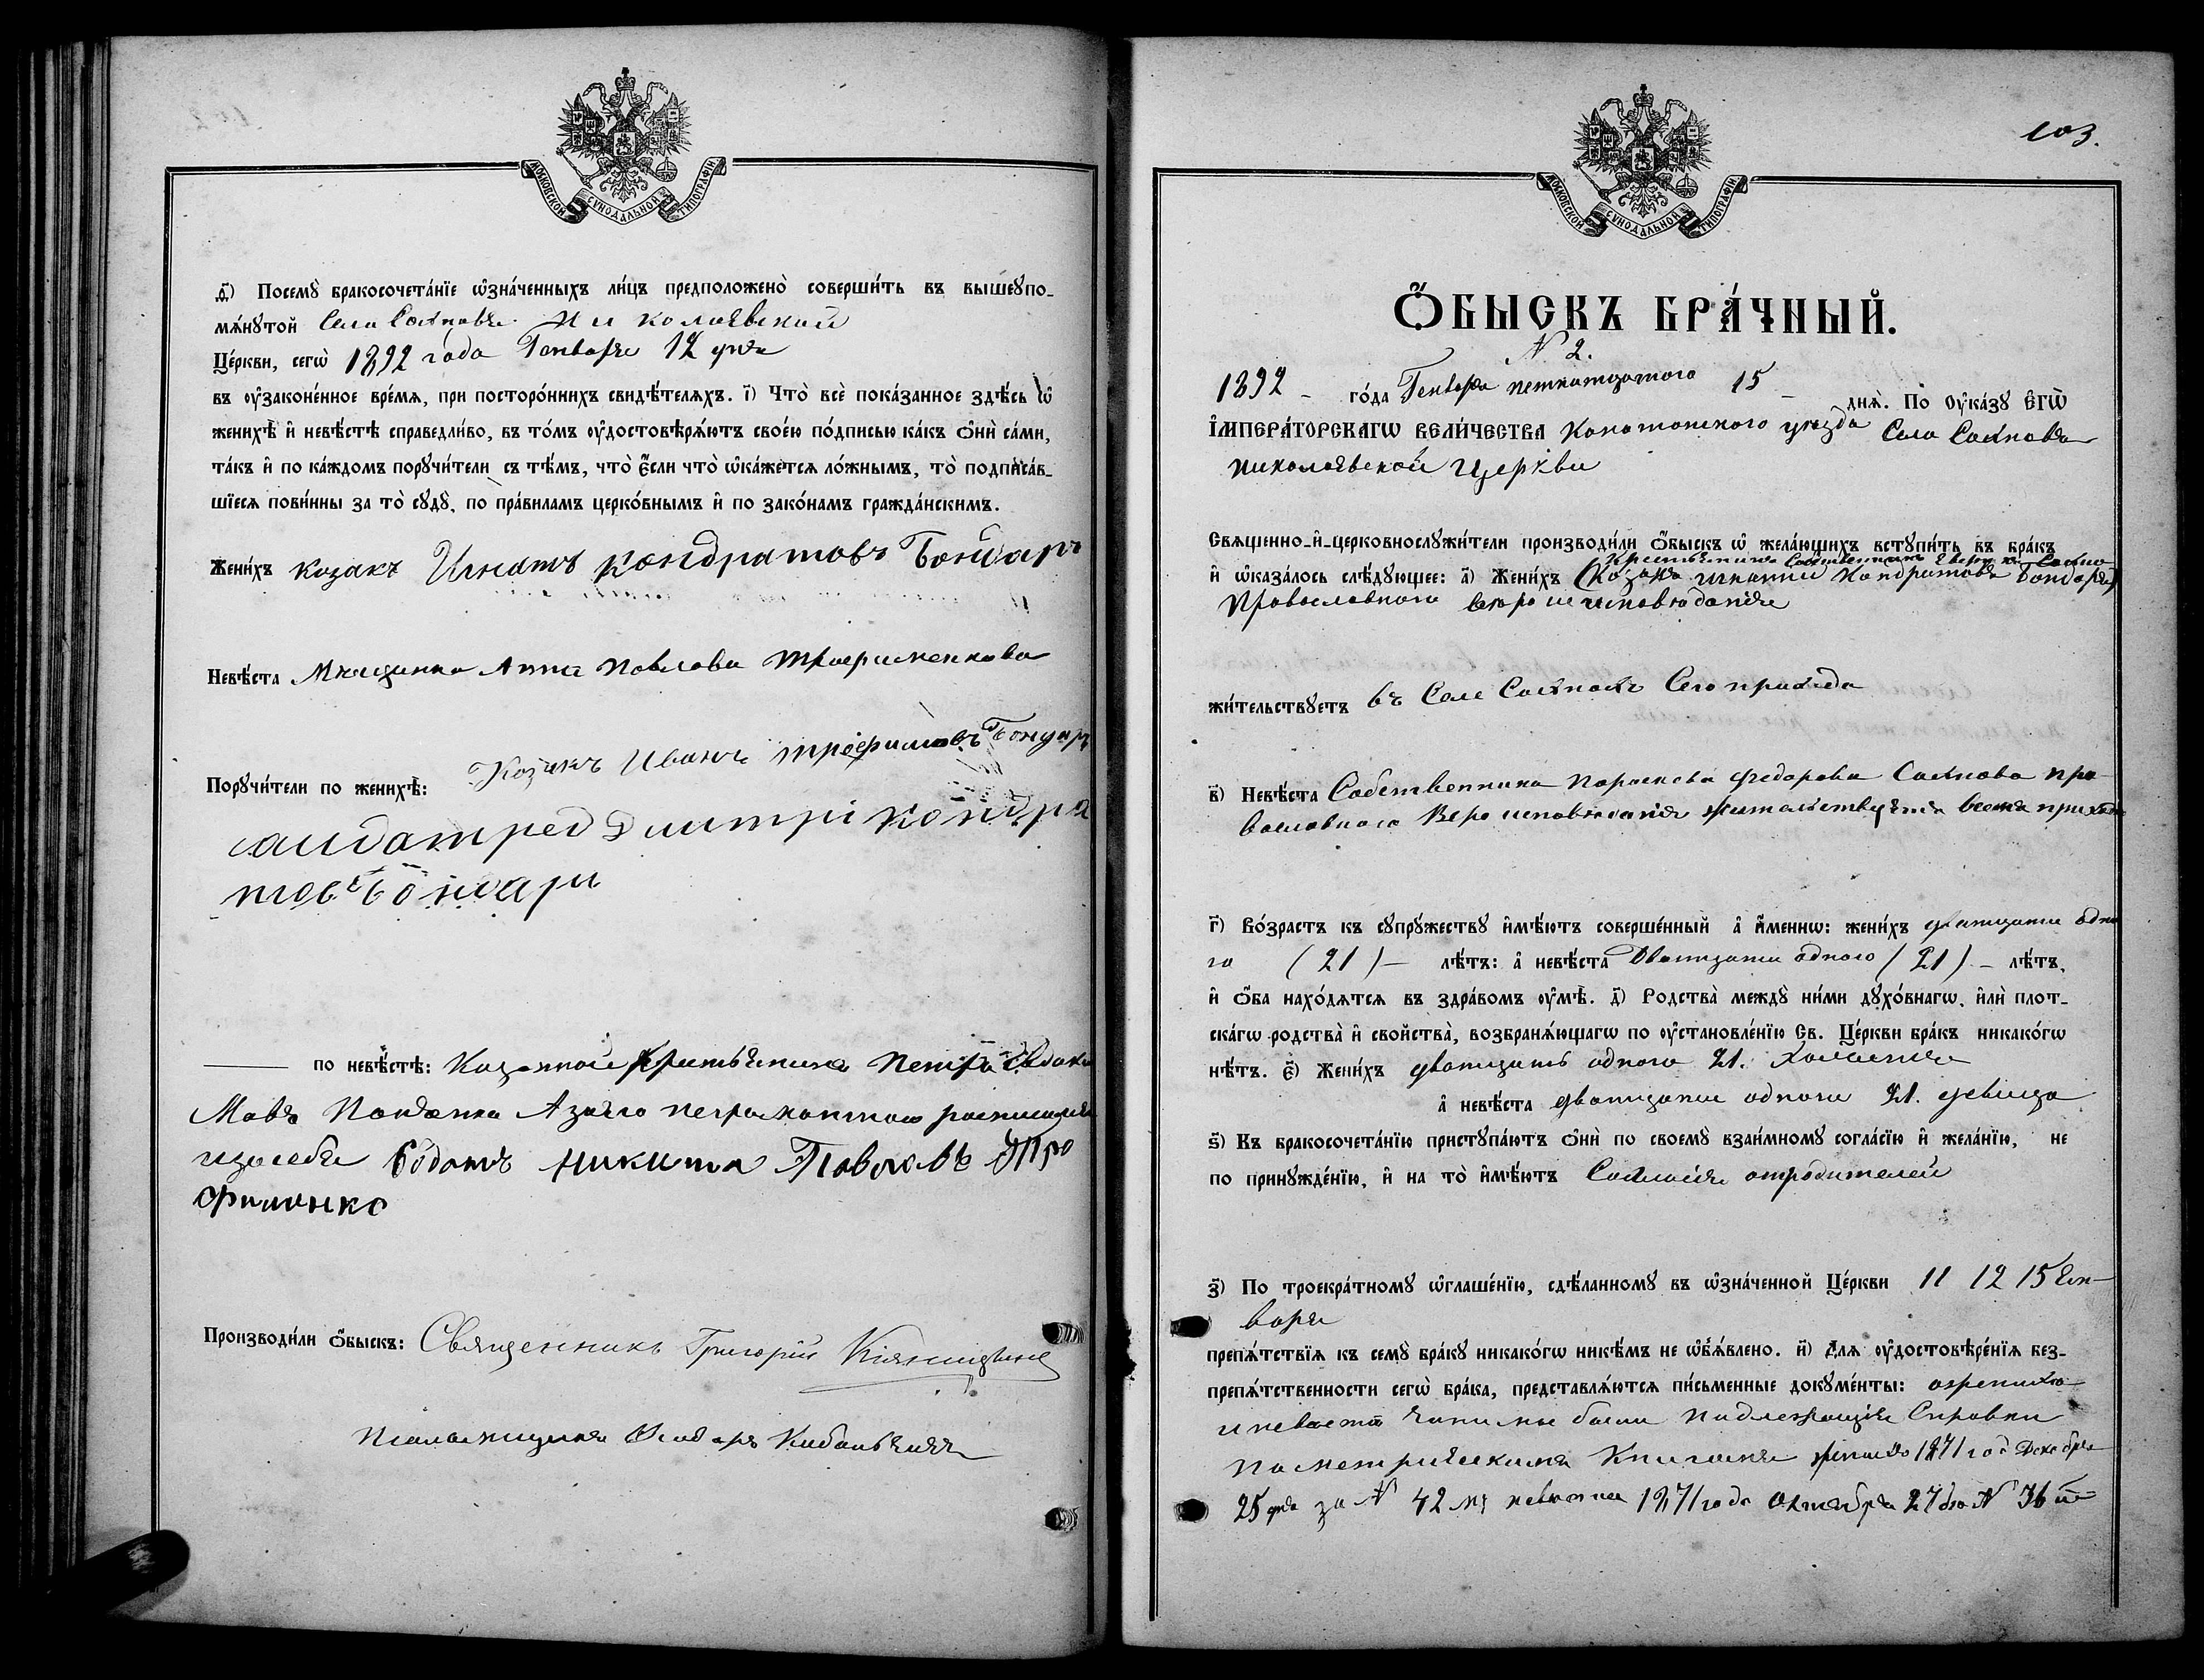 МОСКОВСКОЙ СѴНОДАЛЬНОЙ ТИПОГРАФІИ
д҃) Посемꙋ̀ бракосочета́нїе ѡ҆зна́ченныхъ ли́цъ предположено̀ соверши́ть въ вышеꙋпо-
мѧ́нꙋтой Села Сахновъ Николаевской
Це́ркви, сегѡ̀ 1892 года Генваря 12 дня
въ ᲂу҆законе́нное вре́мѧ, при посторо́ннихъ свидѣ́телѧхъ. і҃) Что̀ всѐ пока́занное здѣ́сь ѡ҆
женихѣ̀ и҆ невѣ́стѣ справедли́во, въ то́мъ ᲂу҆достовѣрѧ́ютъ свое́ю по́дписью ка́къ ѻ҆нѝ са́ми,
та́къ и҆ по ка́ждомъ порꙋчи́тели съ тѣ́мъ, что̀ є҆́сли что̀ ѡ҆ка́жетсѧ ло́жнымъ, то̀ подписа́в-
шїесѧ пови́нны за то̀ сꙋдꙋ̀, по пра́виламъ церко́внымъ и҆ по зако́намъ гражда́нскимъ.
Жени́хъ козакъ Игнатъ Кондратовъ Бондаръ
Невѣ́ста Мещанка Анна Павлова Трофименкова
Порꙋчи́тели по женихѣ̀: Козакъ Иванъ Трофимовъ Бондаръ
Дмитрі Кондра
товъ Бондарь
по невѣ́стѣ: Петра Евдоки
мовъ Азаего неграмотнаго росписался
изасебя Никита Павловъ Тро
фименко
Производи́ли ѻ҆́быскъ: Священникъ Григорій
Псаломщикъ
МОСКОВСКОЙ СѴНОДАЛЬНОЙ ТИПОГРАФІИ
103.
Ѻ҆́БЫСКЪ БРА́ЧНЫЙ.
N 2.
1892 - го́да Генваря петнатцатого 15 - днѧ̀. По ᲂу҆ка́зꙋ Є҆гѡ̀
І҆мпера́торскагѡ вели́чества Конотопского уезда Села Сахновъ
николаевской Церкви
Свѧщенно-и҆-церковнослꙋжи́тели производи́ли ѻ҆́быскъ ѡ҆ жела́ющихъ встꙋпи́ть въ бра́къ
и҆ ѡ҆каза́лось слѣ́дꙋющее: а҃) Жени́хъ (Козакъ Игнатій Кондратовъ Бондаръ)
Православного вероисповеданія
жи́тельствꙋетъ въ Селе Сахновъ Сего прихода
в҃) Невѣ́ста Собственника Параскева Федорова Сахнова пра-
вославного Вероисповеданія жительствуетъ
г҃) Во́зрастъ къ сꙋпрꙋ́жествꙋ и҆мѣ́ютъ соверше́нный а҆ и҆́меннѡ: жени́хъ дватцати одно
го (21) - лѣ́тъ: а҆ невѣ́ста Дватцати одного (21) - лѣ́тъ,
и҆ ѻ҆́ба нахо́дѧтсѧ въ здра́вомъ ᲂу҆мѣ̀. д҃) Родства̀ междꙋ̀ ни́ми дꙋхо́внагѡ, и҆лѝ плот-
ска́гѡ родства̀ и҆ свойства̀, возбранѧ́ющагѡ по ᲂу҆становле́нїю Св. Це́ркви бра́къ никако́гѡ
нѣ́тъ. є҃) Жени́хъ дватцать одного 21. холостъ
а҆ невѣ́ста дватцати одного 21. девица
ѕ҃) Къ бракосочета́нїю пристꙋпа́ютъ ѻ҆нѝ по своемꙋ̀ взаи́мномꙋ согла́сїю и҆ жела́нїю, не
по принꙋжде́нїю, и҆ на то̀ и҆мѣ́ютъ отродителей
з҃) По троекра́тномꙋ ѡ҆глаше́нїю, сдѣ́ланномꙋ въ ѡ҆зна́ченной Це́ркви 11 12 15 Ген-
варя
препѧ́тствїѧ къ семꙋ̀ бра́кꙋ никако́гѡ никѣ́мъ не ѡ҆б̾ѧ́влено. и҃) Длѧ ᲂу҆достовѣре́нїѧ без-
препѧ́тственности сегѡ̀ бра́ка, представлѧ́ютсѧ пи́сьменные докꙋме́нты: ожених
и невесте были Надлежащія Справки
По метрическимъ Книгамъ 1871 год Декабря
25 дня за N 42 1871 года Октября 27 N 36